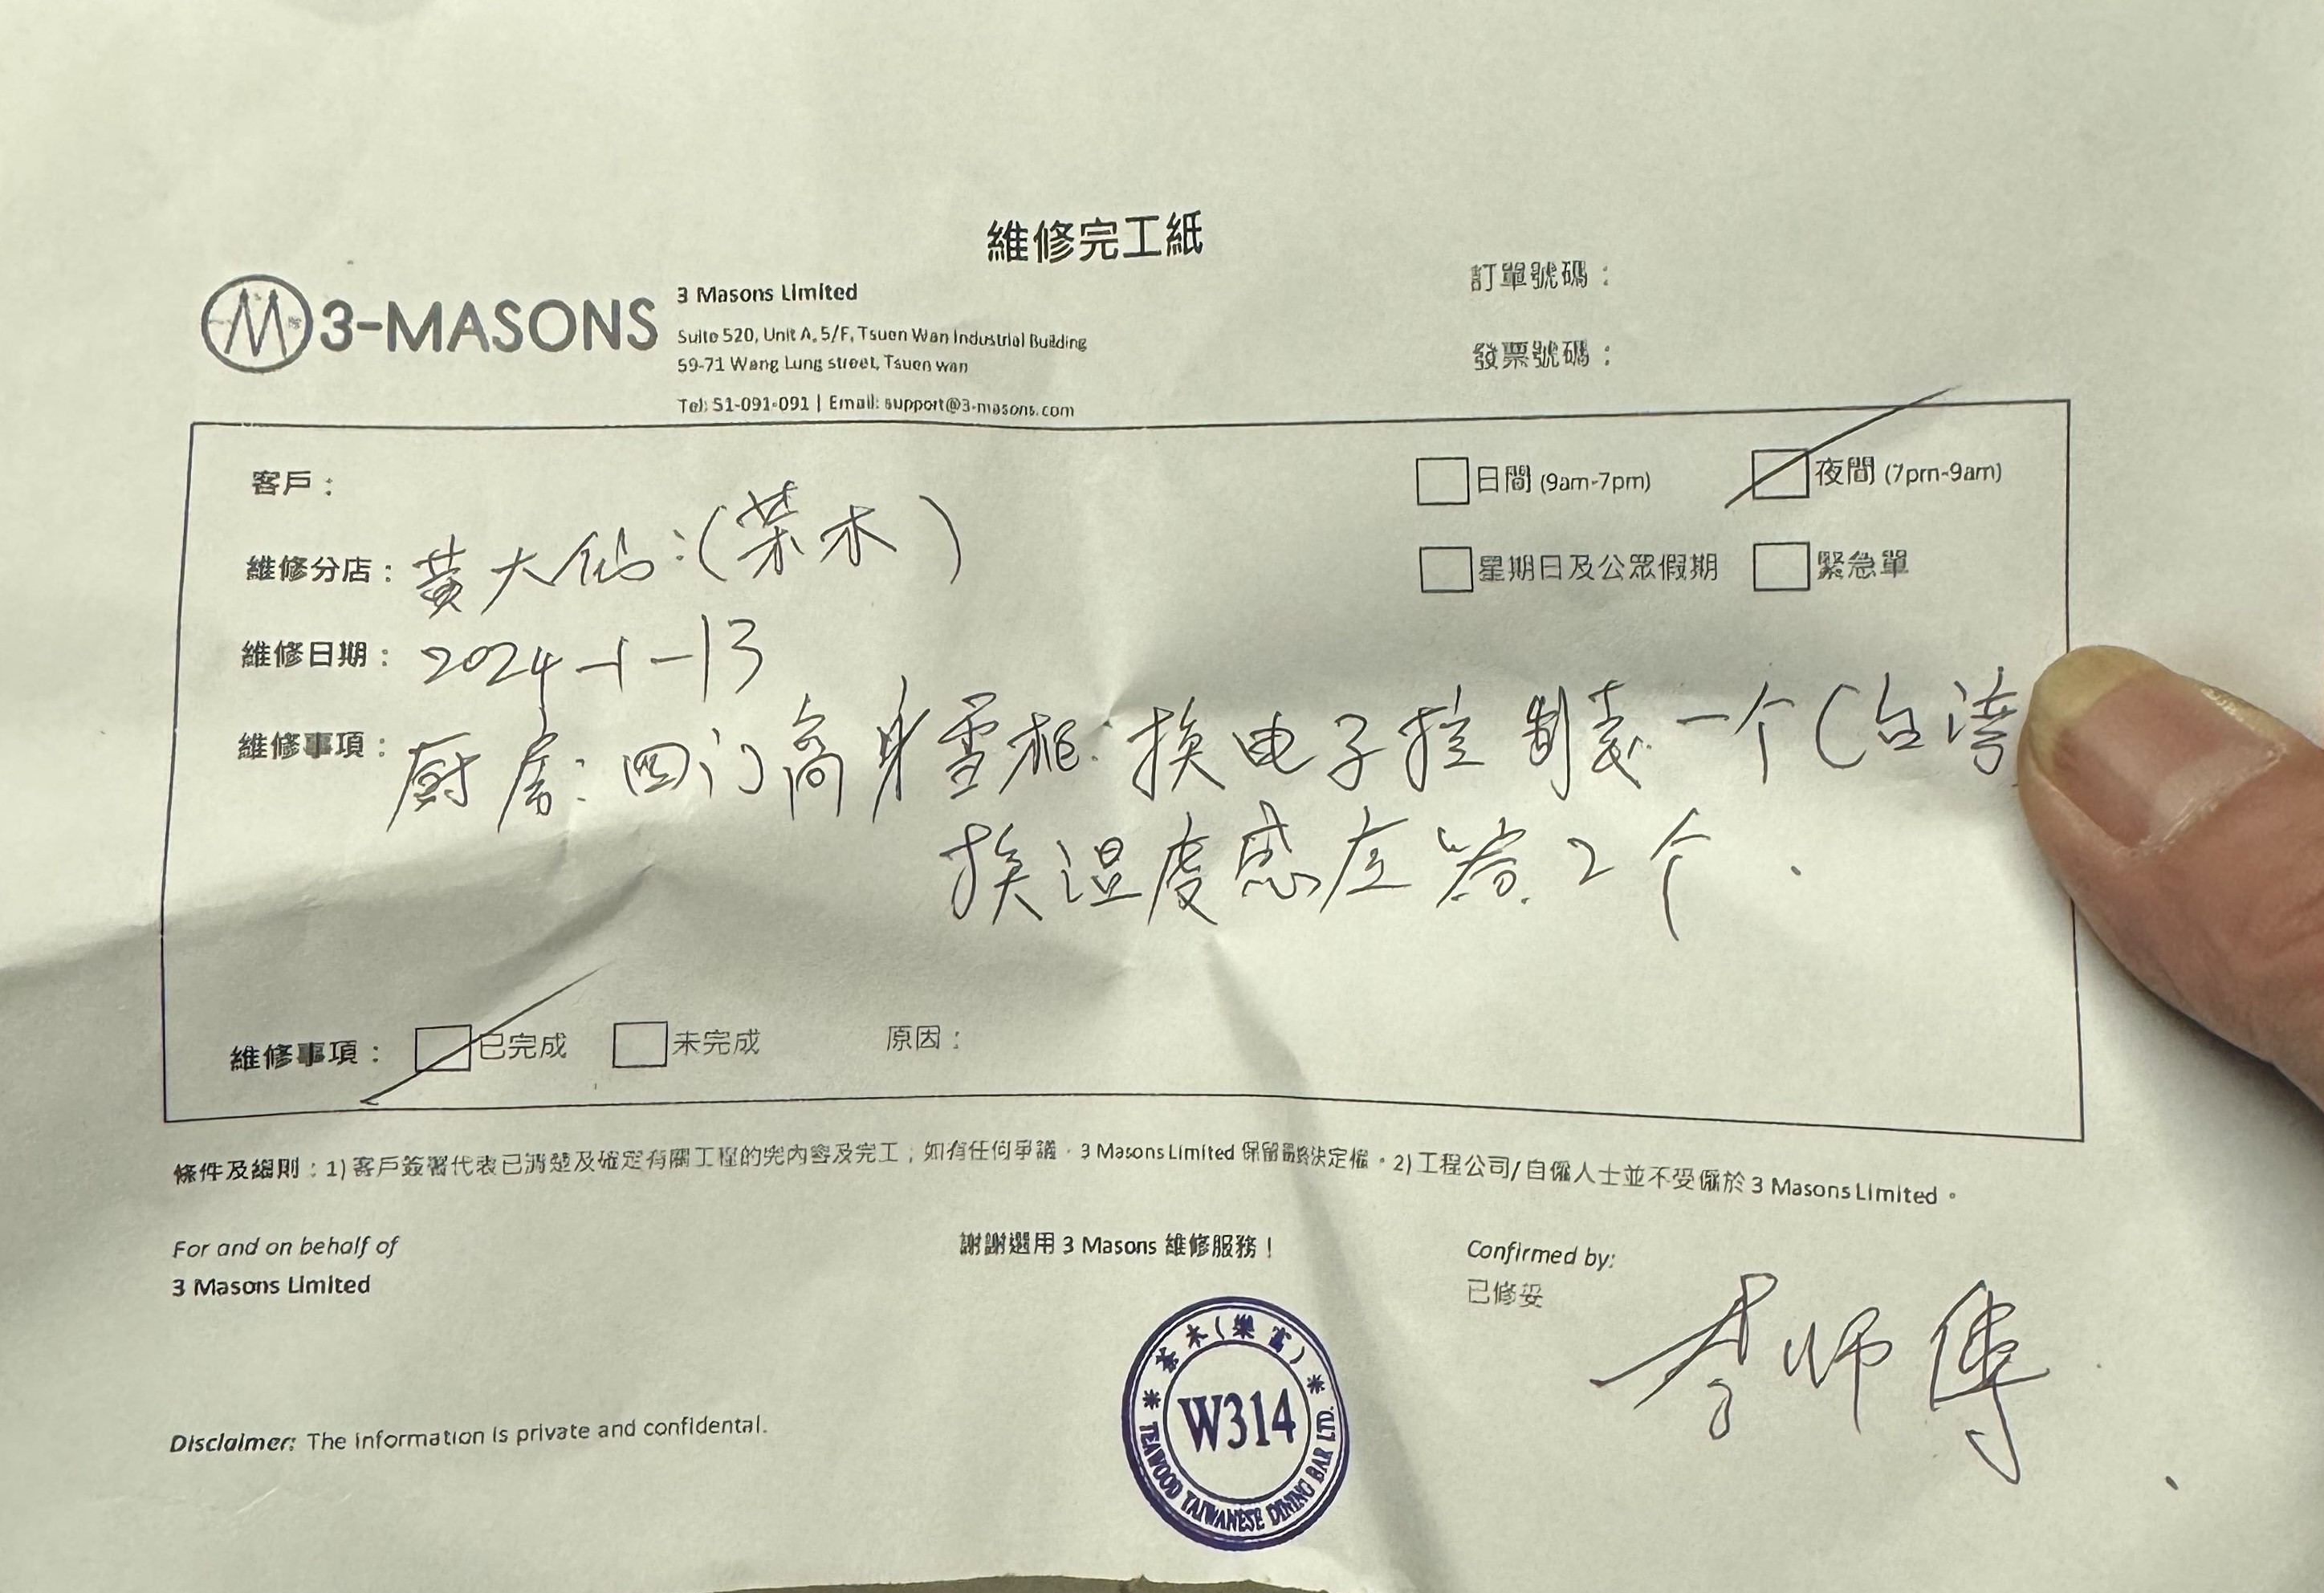 維修完工紙
3-MASONS
3 Masons Limited
Suite 520, Unit A, 5/F, Tsuen Wan Industrial Building
59-71 Wang Lung street, Tsuen wan
Tel: 51-091-091 | Email: support@3-masons.com
訂單號碼：
發票號碼：
客戶：
日間 (9am-7pm)
夜間 (7pm-9am)
維修分店：黃大仙:(茶木)
星期日及公眾假期
緊急單
維修日期：2024-1-13
維修事項：厨房:四门高身雪柜:换电子控制表一个(台湾
换温度感应器2个.
維修事項：
已完成
未完成
原因：
條件及細則：1) 客戶簽署代表已清楚及確定有關工程的內容及完工；如有任何爭議，3 Masons Limited 保留最終決定權。2) 工程公司/自僱人士並不受僱於 3 Masons Limited。
For and on behalf of
3 Masons Limited
謝謝選用 3 Masons 維修服務！
Confirmed by:
已修妥
李师傅
茶木(樂富)
W314
TEAWOOD TAIWANESE DINING BAR LTD.
Disclaimer: The information is private and confidental.